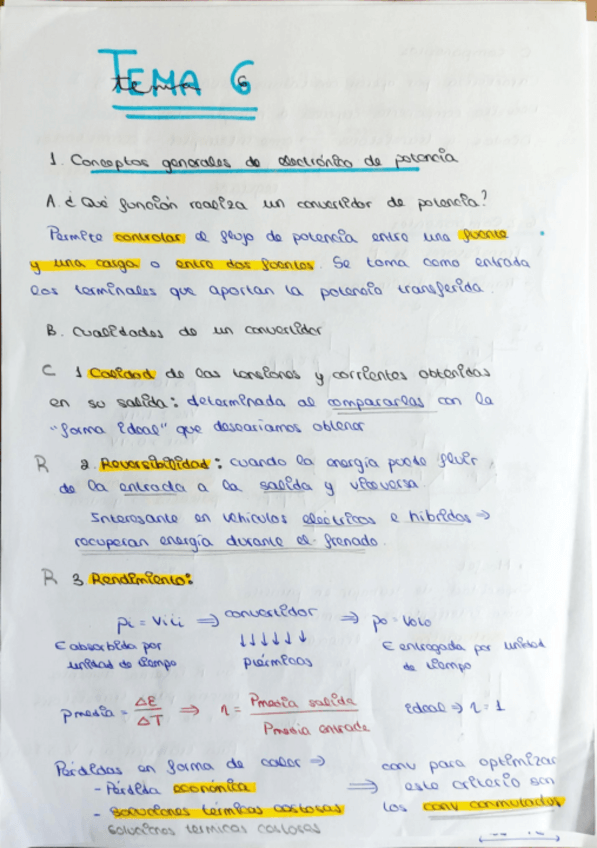 TEMA 6
tema 6
1. Conceptos generales de electrónica de potencia
A. ¿Qué función realiza un convertidor de potencia?
Permite controlar el flujo de potencia entre una fuente
y una carga o entre dos fuentes. Se toma como entrada
los terminales que aportan la potencia transferida.
B. Cualidades de un convertidor
C 1 Calidad de las tensiones y corrientes obtenidas
en su salida: determinada al compararlas con la
"forma ideal" que desearíamos obtener
R 2. Reversibilidad: cuando la energía puede fluir
de la entrada a la salida y viceversa.
Interesante en vehículos eléctricos e híbridos →
recuperan energía durante el frenado.
R 3 Rendimiento:
pi = vi ii ⇒ convertidor ⇒ po = vo io
E absorbida por ↓↓↓↓↓↓ E entregada por unidad
unidad de tiempo ptérmicas de tiempo
pmedia = ΔE/ΔT ⇒ η = Pmedia salida / Pmedia entrada ideal ⇒ η = 1
Pérdidas en forma de calor ⇒ conv para optimizar
- Pérdida económica ⇒ este criterio son
- Soluciones térmicas costosas los conv conmutados
soluciones térmicas costosas